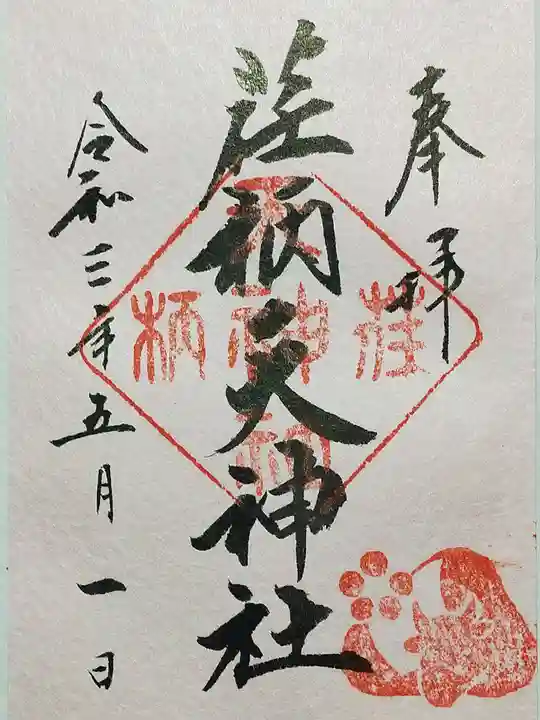 奉拝
荏柄天神社
令和三年五月一日
荏
柄
天
神
社